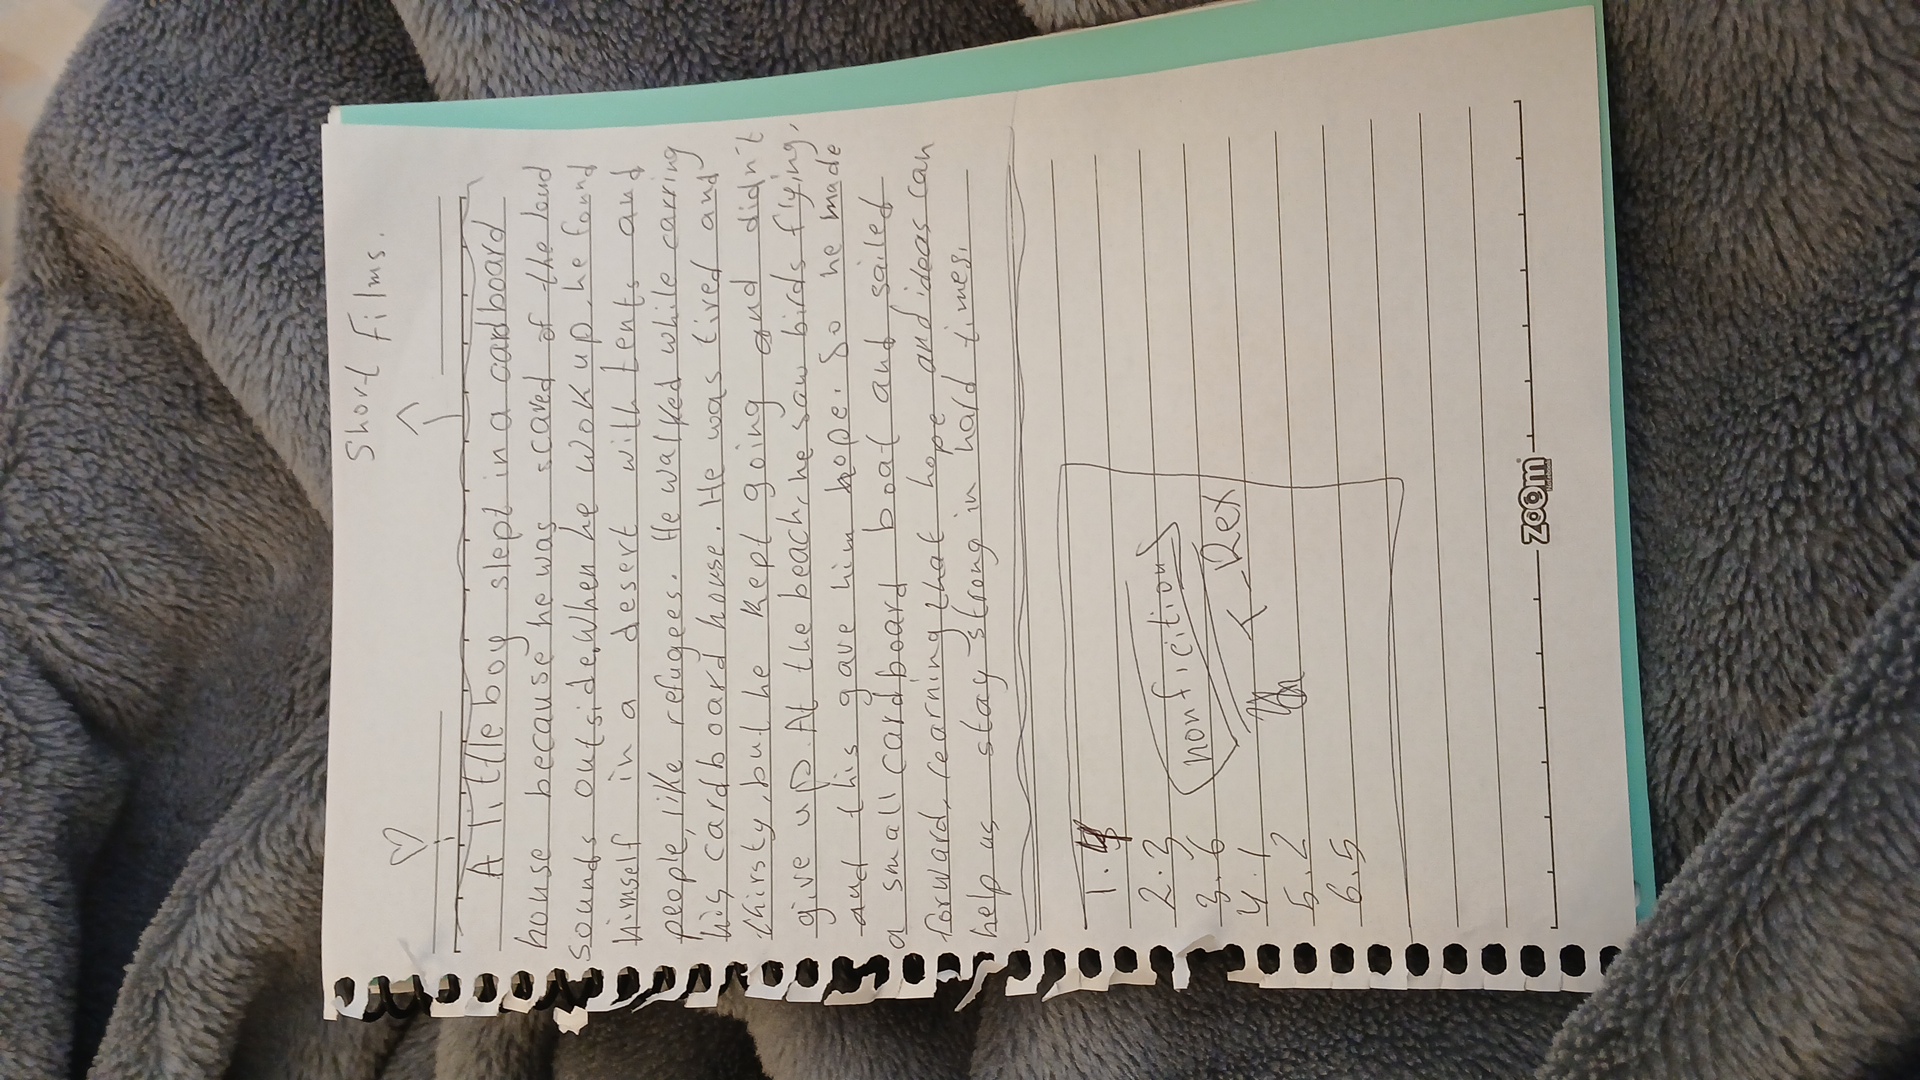 Short Films.
A little boy slept in a cardboard
house because he was scared of the loud
sounds outside. When he wok up, he found
himself in a desert with tents and
people, like refugees. He walked while carring
his cardboard house. He was tired and
thirsty, but he kept going and didn't
give up. At the beach, he saw birds flying,
and this gave him hope. So he made
a small cardboard boat and sailed
forward, rearning that hope and ideas can
help us stay strong in hard times.
1.
2.3
3.6
4.1
5.2
6.5
nonficition
Rex
zoom